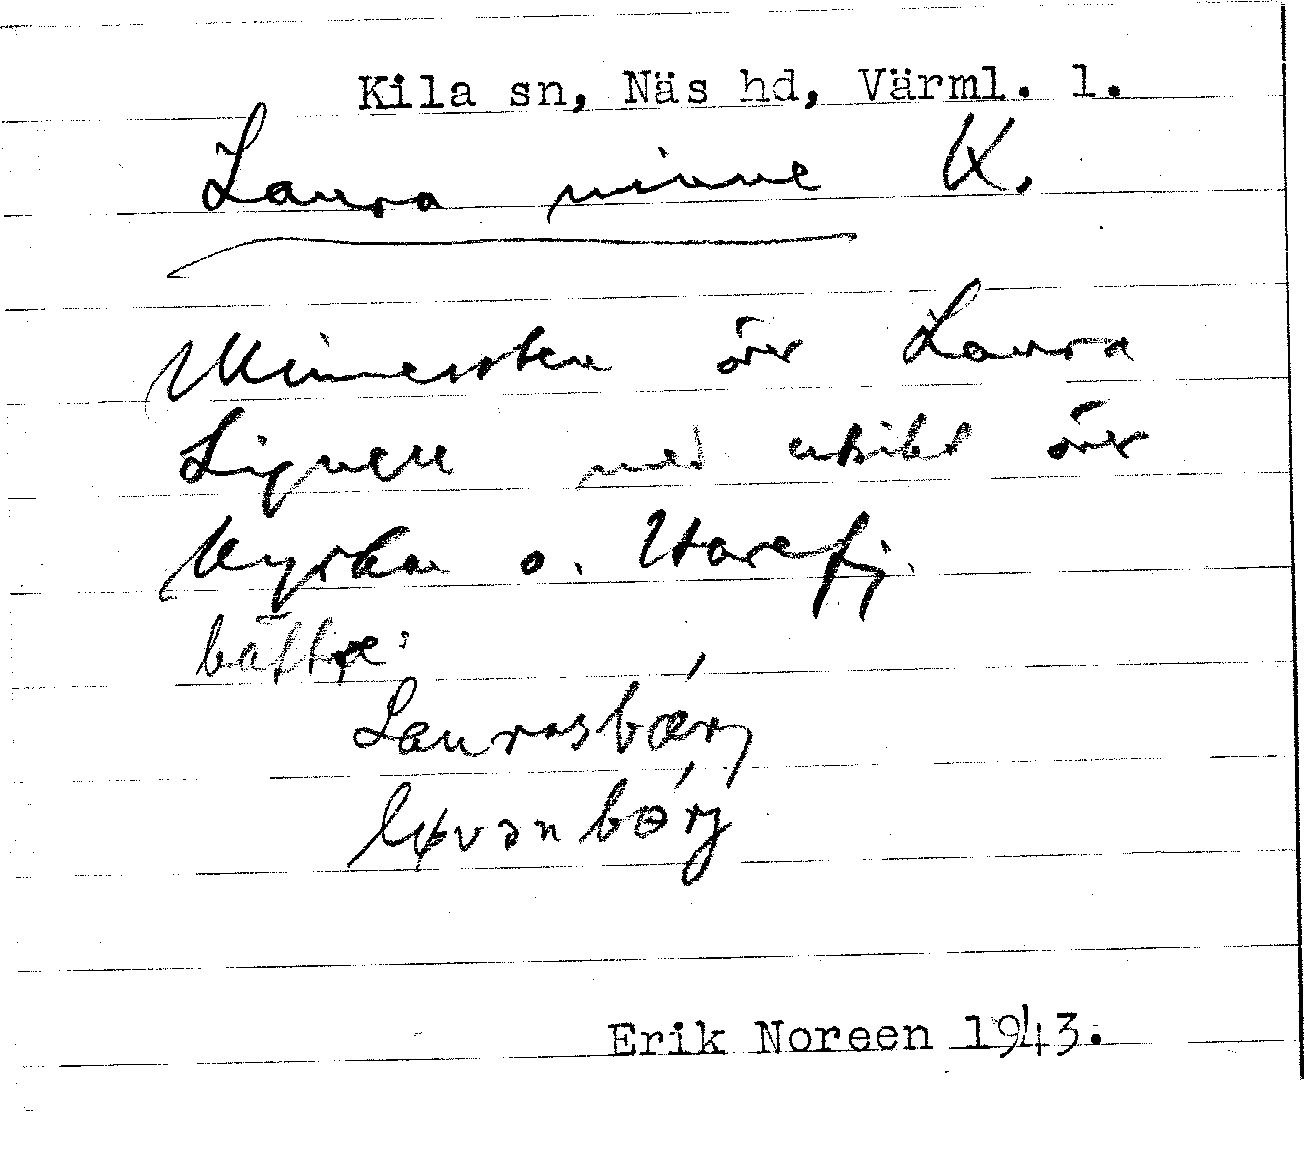 Kila sn, Näs hd, Värml. l.
Laura minne K.
Minnessten över Laura
Lignell med utsikt över
kyrkan o. Harefj.
bättre:
Laurasbærj
Løvənbərj
Erik Noreen 1943.